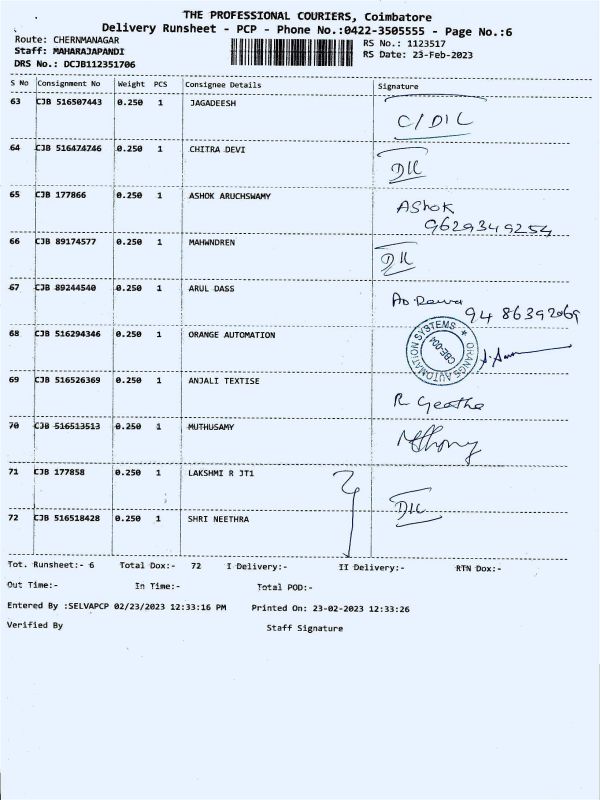 THE PROFESSIONAL COURIERS, Coimbatore
Delivery Runsheet - PCP - Phone No.:0422-3505555 - Page No.:6
Route: CHERNMANAGAR RS No.: 1123517
Staff: MAHARAJAPANDI RS Date: 23-Feb-2023
DRS No.: DCJB112351706
S No Consignment No Weight PCS Consignee Details Signature
63 CJB 516507443 0.250 1 JAGADEESH
C/DIL
64 CJB 516474746 0.250 1 CHITRA DEVI
DIL
65 CJB 177866 0.250 1 ASHOK ARUCHSWAMY
AShok
9629349254
66 CJB 89174577 0.250 1 MAHWNDREN
DIL
67 CJB 89244540 0.250 1 ARUL DASS
94 86392069
68 CJB 516294346 0.250 1 ORANGE AUTOMATION
ORANGE AUTOMATION SYSTEMS ★
CBE-004
69 CJB 516526369 0.250 1 ANJALI TEXTISE
R Geetha
70 CJB 516513513 0.250 1 MUTHUSAMY
71 CJB 177858 0.250 1 LAKSHMI R JT1
DIL
72 CJB 516518428 0.250 1 SHRI NEETHRA
Tot. Runsheet:- 6 Total Dox:- 72 I Delivery:- II Delivery:- RTN Dox:-
Out Time:- In Time:- Total POD:-
Entered By :SELVAPCP 02/23/2023 12:33:16 PM Printed On: 23-02-2023 12:33:26
Verified By Staff Signature